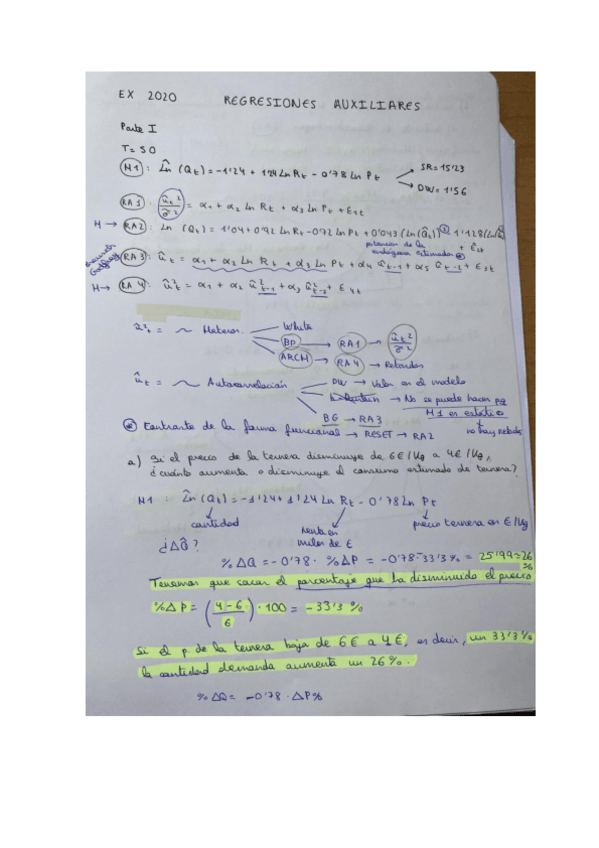 EX 2020 REGRESIONES AUXILIARES
Parte I
T = 50
M1 : L̂n (Qt) = -1'24 + 1'24 Ln Rt - 0'78 Ln Pt → SR = 15'23
→ DW = 1'56
RA1 : ût²/σ̂² = α1 + α2 Ln Rt + α3 Ln Pt + E1t
M → RA2 : Ln (Qt) = 1'04 + 0'92 Ln Rt - 0'72 Ln Pt + 0'043 (Ln(Q̂t))² 1'128 (Ln(Q̂
potencias de la endógena estimada + E2t
Breusch Godfrey RA3 : ût = α1 + α2 Ln Rt + α3 Ln Pt + α4 ût-1 + α5 ût-2 + E3t
M → RA4 : ût² = α1 + α2 û²t-1 + α3 û²t-2 + E4t
û²t = ~ Heteros. White
BP → RA1 → ût²/σ̂²
ARCH → RA4 → Retardos
ût = ~ Autocorrelación DW → Valor en el modelo
→ No se puede hacer pq
M1 es estático
BG → RA3 no hay retardos
Contraste de la forma funcional → RESET → RA2
a) Si el precio de la ternera disminuye de 6€/Kg a 4€/Kg,
¿cuánto aumenta o disminuye el consumo estimado de ternera?
M1 : L̂n (Qt) = -1'24 + 1'24 Ln Rt - 0'78 Ln Pt
cantidad Renta en miles de € precio ternera en €/Kg
¿ΔQ̂?
%ΔQ = -0'78 · %ΔP = -0'78·-33'3% = 25'99≈26 %
Tenemos que sacar el porcentaje que ha disminuido el precio
%ΔP = (4-6/6) · 100 = -33'3 %
Si el p de la ternera baja de 6€ a 4€, es decir, un 33'3%
la cantidad demanda aumenta un 26%.
%ΔQ = -0'78 · ΔP%